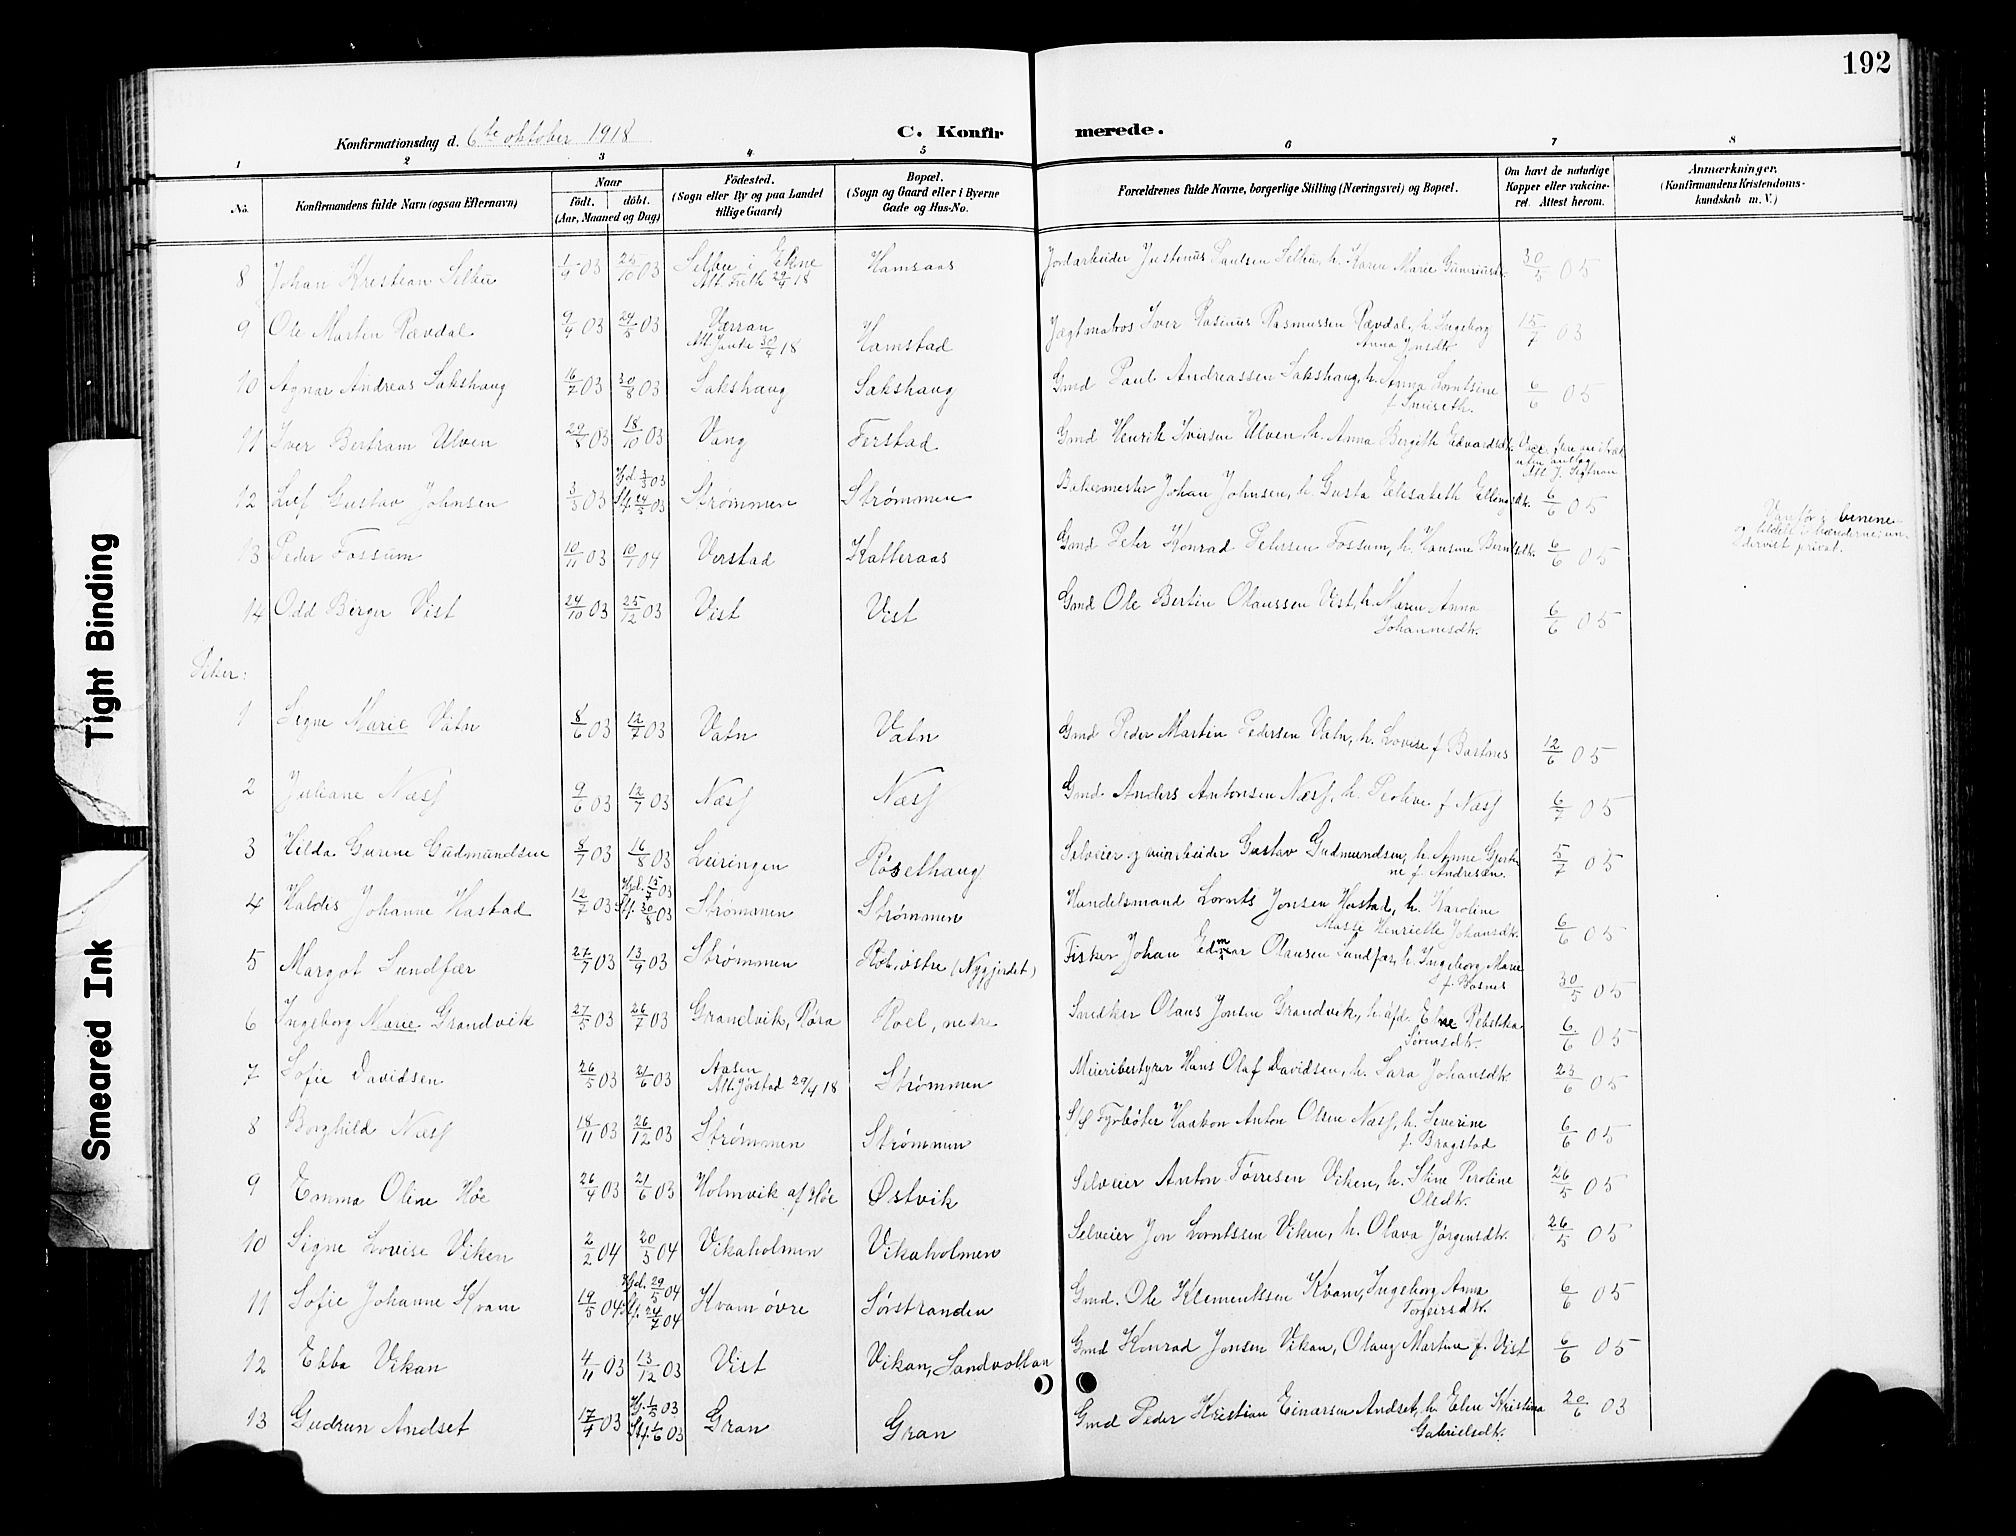 192
Konfirmationsdag d. 6te oktober 1918
C. Konfirmerede.
1 2 3 4 5 6 7 8
No. Konfirmandens fulde Navn (ogsaa Efternavn) Naar født. døbt. (Aar, Maaned og Dag) Fødested. (Sogn eller By og paa Landet tillige Gaard) Bopæl. (Sogn og Gaard eller i Byerne Gade og Hus-No. Forældrenes fulde Navne, borgerlige Stilling (Næringsvei) og Bopæl. Om havt de naturlige Kopper eller vakcineret. Attest herom. Anmærkninger, (Konfirmandens Kristendomskundskab m. V.)
8 Johan Kristian Selbu 1/9 03 25/10 03 Selbu i Ekne Hamsaas Jordarbeider Justinus Paulsen Selbu, h. Karen Marie 30/5 05
Att. 29/4 18
9 Ole Martin Rævdal 9/4 03 24/5 03 Værran Hamstad Jagtmatros Iver Rasmussen Rævdal, h. Ingeborg 15/7 03
Att. 30/4 18 Anna Jonsdtr.
10 Agnar Andreas Sakshaug 16/7 03 30/8 03 Sakshaug Sakshaug Gmd Paul Andreassen Sakshaug, h. Anna Lorntsine 6/6 05
11 Iver Bertram Ulven 29/8 03 18/10 03 Vang Ferstad Gmd Henrik Iversen Ulven, h. Anna Bergith Edvardsdtr.
12 Leif Gustav Johnsen 3/3 03 Hjd. 3/3 03 Stf. 24/5 03 Strømmen Strømmen Bakermester Johan Johnsen, h. Gusta Elisabeth Ellingsdtr. 6/6 05
13 Peder Fossum 10/11 03 10/1 04 Verstad Katteraas Gmd Peter Konrad Petersen Fossum, h. Hansine Berntsdtr. 6/6 05 Vanfør i benene
privat.
14 Odd Birger Vist 24/10 03 25/12 03 Vist Vist Gmd Ole Bertin Olaussen Vist, h. Maren Anna 6/6 05
Johannesdtr.
Piker:
1 Signe Marie Vatn 8/6 03 12/7 03 Vatn Vatn Gmd Peder Martin Pedersen Vatn, h. Lovise f. Bartnes 12/6 05
2 Juliane Næss 9/6 03 12/7 03 Næss Næss Gmd. Anders Antonsen Næss, h. Peoline f. Næss 6/7 05
3 Hilda Gurine Gudmundsen 8/7 03 16/8 03 Leiringen Røselhaug Selveier og Gustav Gudmundsen, h. Anne Gjerti- 5/7 05
ne f. Andresen.
4 Haldis Johanne Hastad 12/7 03 Hjd. 15/7 03 Stf. 30/8 03 Strømmen Strømmen Handelsmand Lornts Jonsen Hastad, h. Karoline 6/6 05
Masse Henriette Johansdtr.
5 Margot Sundfær 27/7 03 13/9 03 Strømmen Rol, østre (Nygjerdet) Fisker Johan Edmar Olausen Sundfær, h. Ingeborg Marie 30/5 05
f. Bosnes
6 Ingeborg Marie Grandvik 27/5 03 26/7 03 Grandvik, Røra Roel, nedre Snedker Olaus Jonsen Grandvik, h. afd. Eline Rebekka 6/6 05
Sørensdtr.
7 Sofie Davidsen 26/5 03 21/6 03 Aasen Strømmen Meieribestyrer Hans Olaf Davidsen, h. Sara Johansdtr. 23/6 05
Att. Jøstad 29/4 18
8 Borghild Næss 18/11 03 26/12 03 Strømmen Strømmen S/S Fyrbøter Haakon Anton Olsen Næss, h. Severine 6/6 05
f. Bragstad
9 Emma Oline Høe 26/4 03 21/6 03 Holmvik af Høe Østvik Selveier Anton Tørresen Viken, h. Stine Peroline 26/5 05
Olsdtr.
10 Signe Lovise Viken 2/2 04 20/3 04 Vikaholmen Vikaholmen Selveier Jon Lorntssen Viken, h. Olava Jørgensdtr. 26/5 05
11 Sofie Johanne Kvam 19/5 04 Hjd. 29/5 04 Stf. 24/7 04 Kvam øvre Sørstranden Gmd. Ole Klementssen Kvam, Ingeborg Anna 6/6 05
Torgeirsdtr.
12 Ebba Vikan 4/11 03 13/12 03 Vist Vikan, Sandvollan Gmd Konrad Jonsen Vikan, Olaug Martine f. Vist 6/6 05
13 Gudrun Andset 17/4 03 Hj. 1/5 03 Stf. 1/6 03 Gran Gran Gmd Peder Kristian Einarsen Andset, h. Elen Kristina 20/6 03
Gabrielsdtr.
Tight Binding
Smeared Ink